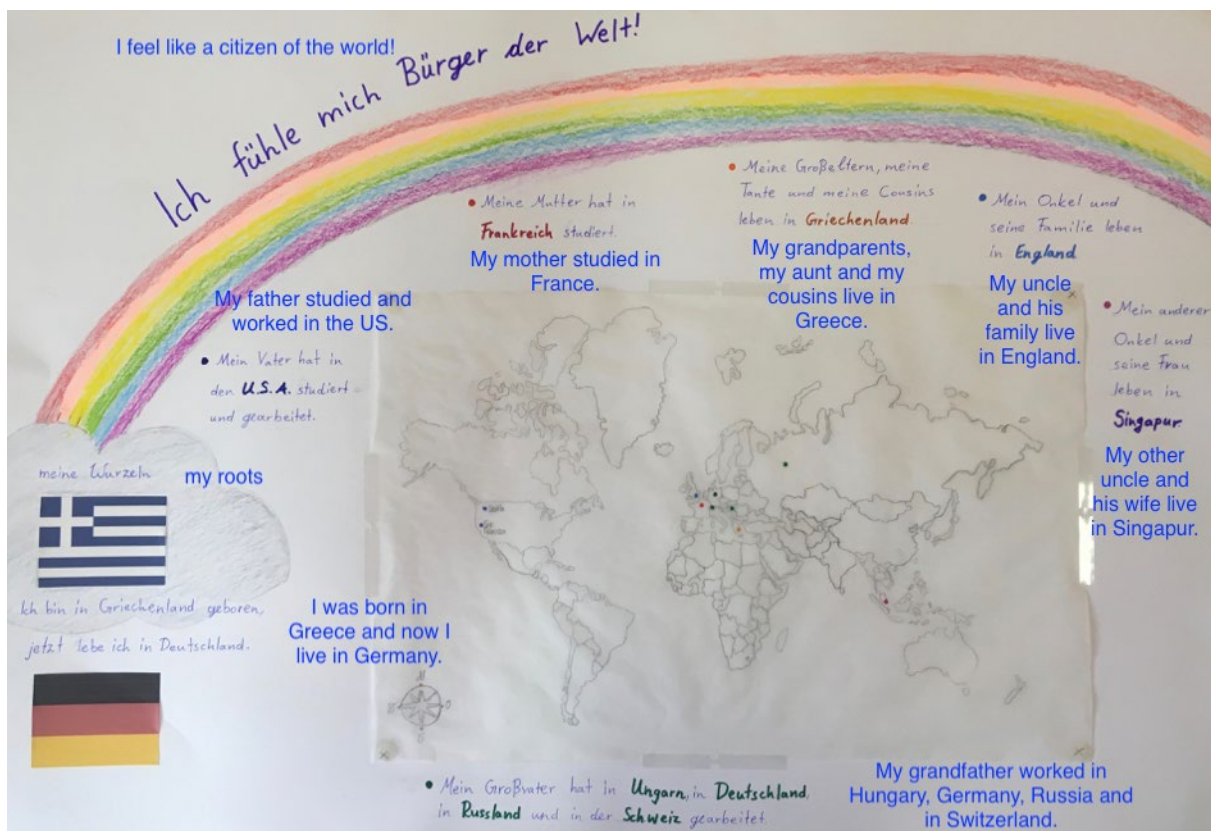 I feel like a citizen of the world!
Ich fühle mich Bürger der Welt!
• Meine Mutter hat in
Frankreich studiert.
My mother studied in
France.
• Meine Großeltern, meine
Tante und meine Cousins
leben in Griechenland.
My grandparents,
my aunt and my
cousins live in
Greece.
• Mein Onkel und
seine Familie leben
in England
My uncle
and his
family live
in England.
• Mein anderer
Onkel und
seine Frau
leben in
Singapur
My other
uncle and
his wife live
in Singapur.
My father studied and
worked in the US.
• Mein Vater hat in
den U.S.A. studiert
und gearbeitet.
meine Wurzeln
my roots
Ich bin in Griechenland geboren,
jetzt lebe ich in Deutschland.
I was born in
Greece and now I
live in Germany.
• Mein Großvater hat in Ungarn, in Deutschland,
in Russland und in der Schweiz gearbeitet.
My grandfather worked in
Hungary, Germany, Russia and
in Switzerland.